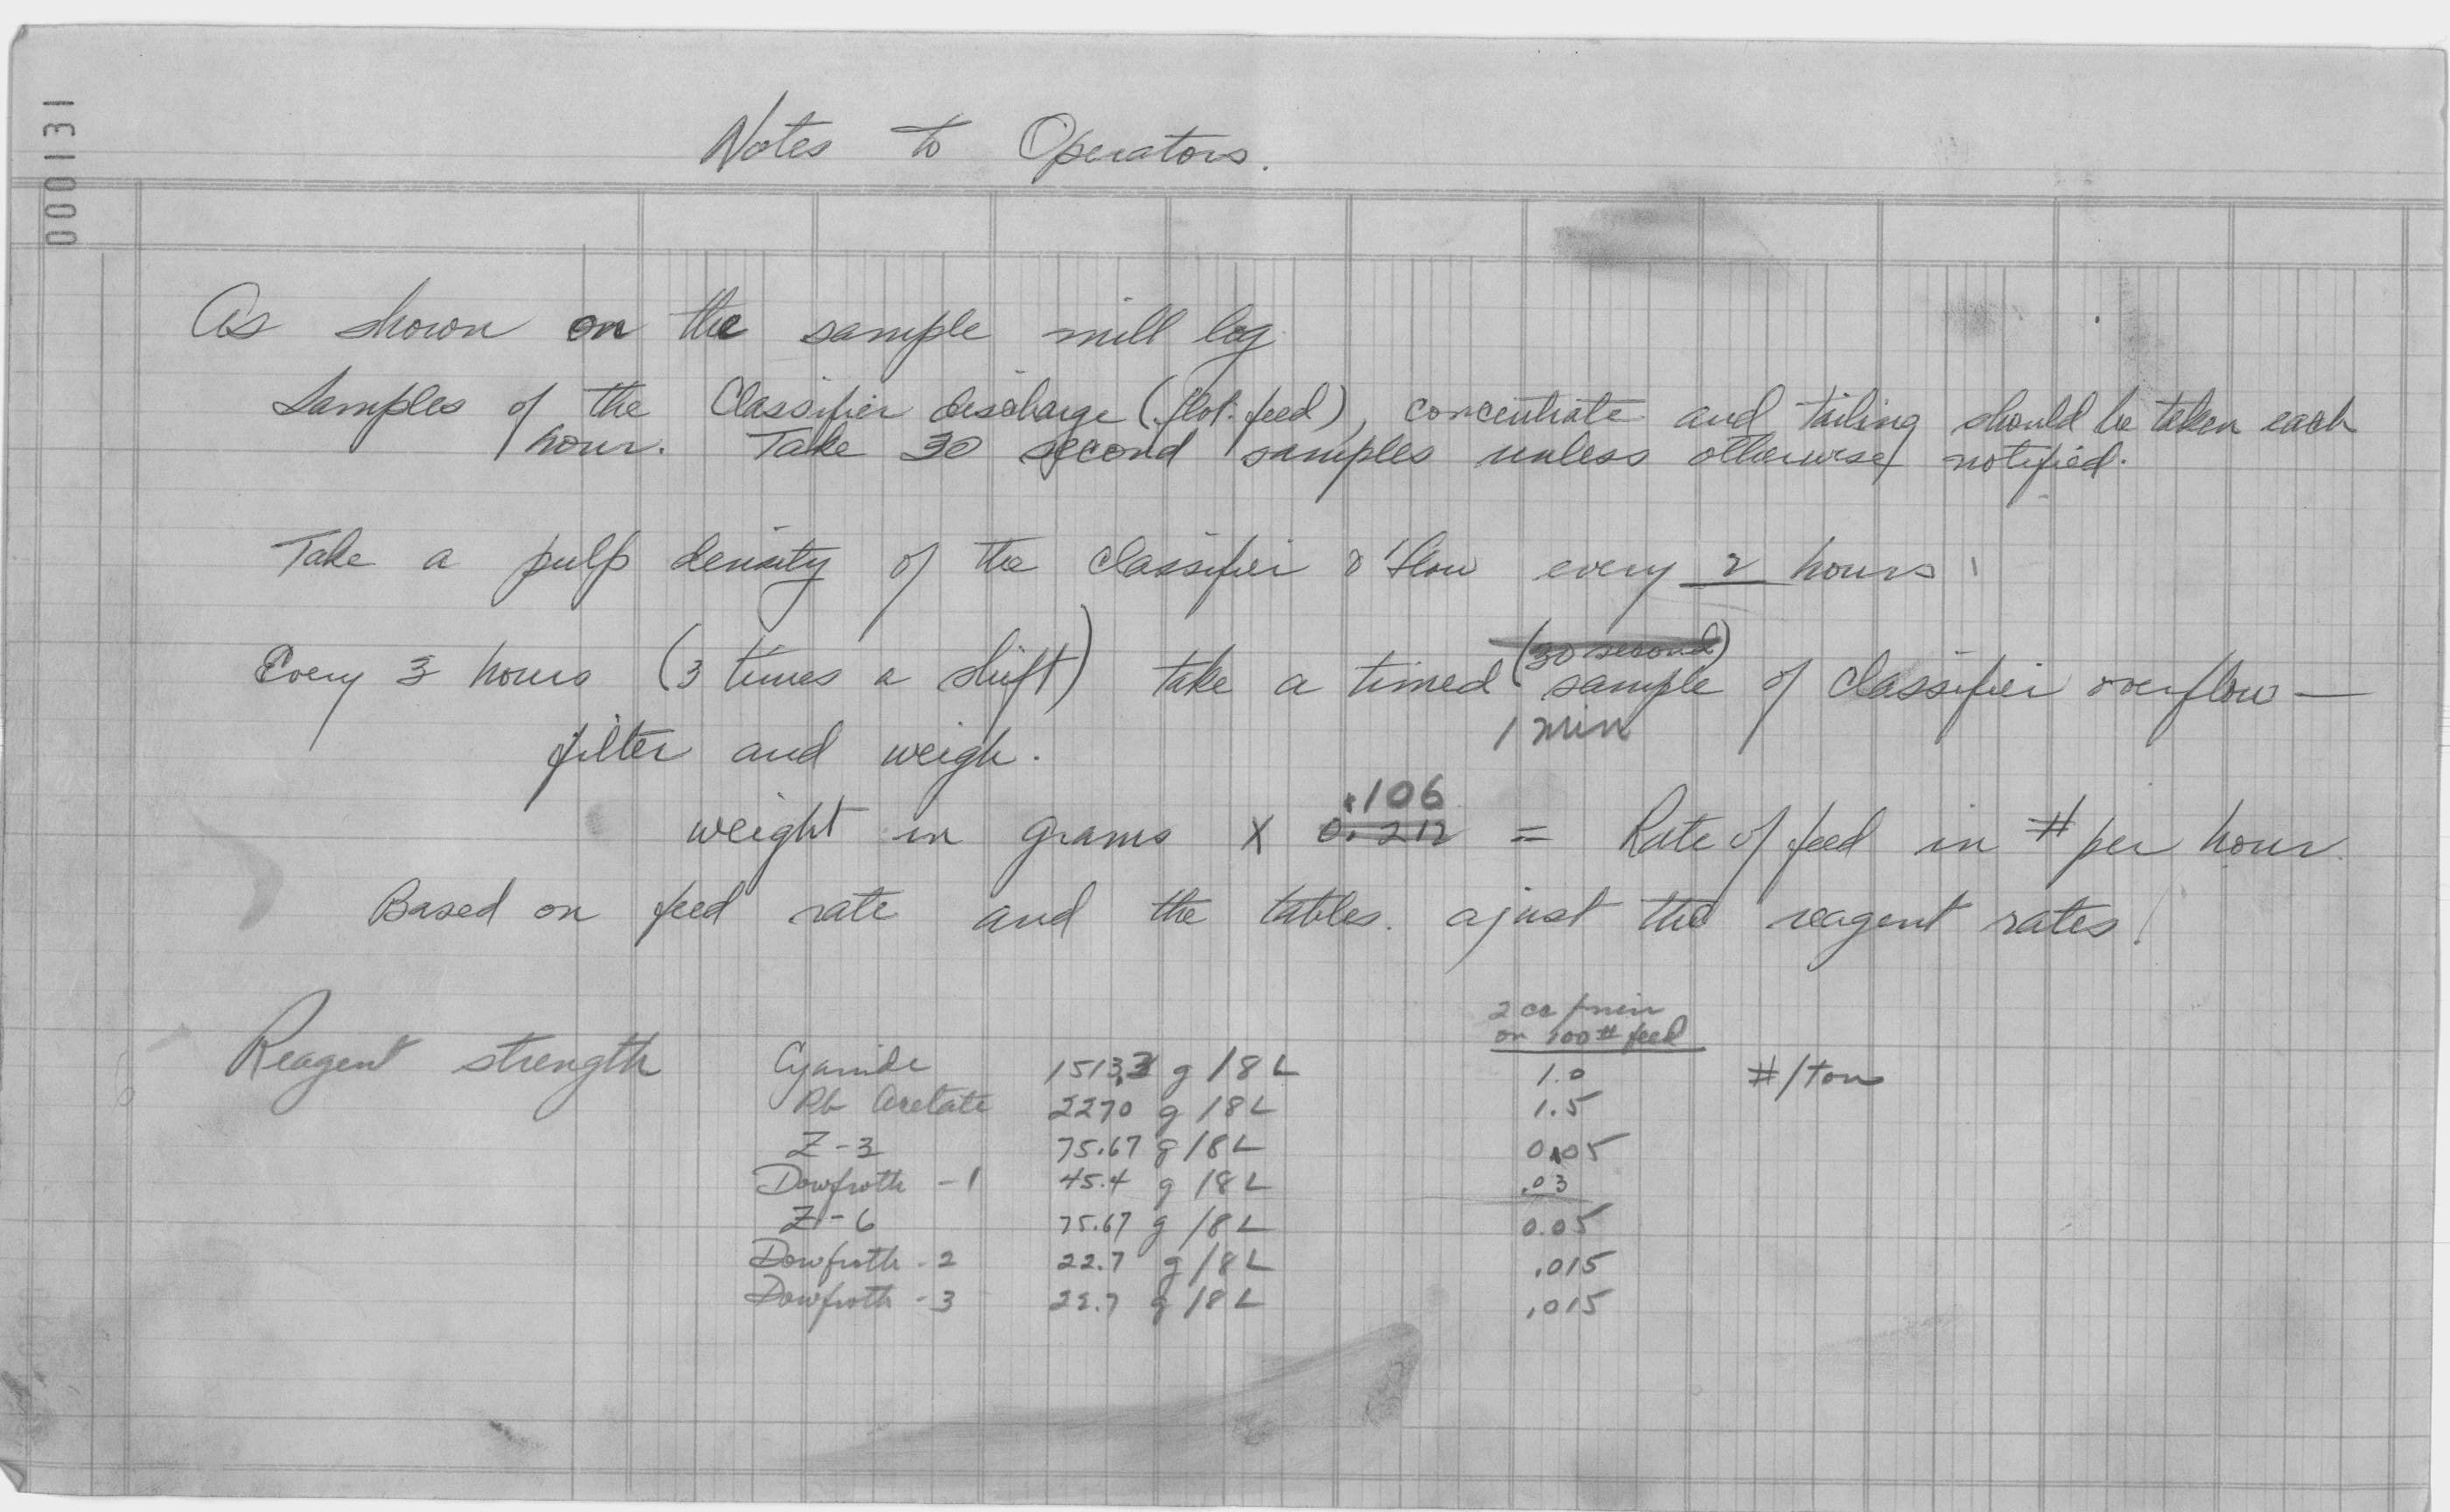 000131
Notes to Operators.
As shown on the sample mill log
Samples of the Classifier discharge (flot. feed), concentrate and tailing should be taken each
hour. Take 30 second samples unless otherwise notified.
Take a pulp density of the classifier o'flow every 2 hours!
(30 second)
Every 3 hours (3 times a shift) take a timed sample of classifier overflow —
1 min
filter and weigh.
.106
weight in grams X 0.212 = Rate of feed in # per hour.
Based on feed rate and the tables. ajust the reagent rates!
2 cc/min
on 100# feed
Reagent strength Cyanide 1513.3 g /8 L 1.0 #/ton
Pb Acetate 2270 g /8 L 1.5
Z-3 75.67 g /8 L 0.05
Dowfroth -1 45.4 g /8 L .03
Z-6 75.67 g /8 L 0.05
Dowfroth -2 22.7 g /8 L .015
Dowfroth -3 22.7 g /8 L .015